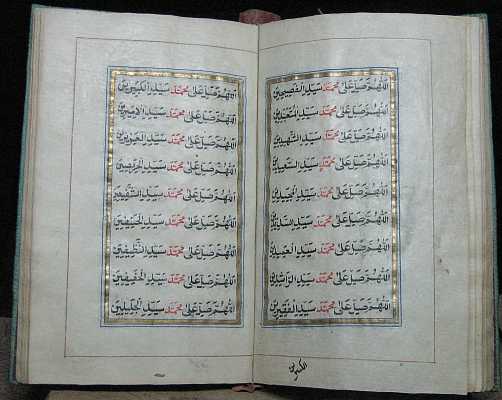 اللهم صل على محمد سيد الفصيحين
اللهم صل على محمد سيد
اللهم صل على محمد سيد الشهيدين
اللهم صل على محمد سيد
اللهم صل على محمد سيد
اللهم صل على محمد سيد
اللهم صل على محمد سيد
اللهم صل على محمد سيد الراشدين
اللهم صل على محمد سيد الفقيرين
الكبيرين
اللهم صل على محمد سيد الكبيرين
اللهم صل على محمد سيد
اللهم صل على محمد سيد
اللهم صل على محمد سيد
اللهم صل على محمد سيد
اللهم صل على محمد سيد الحنيفين
اللهم صل على محمد سيد النظيفين
اللهم صل على محمد سيد الخفيفين
اللهم صل على محمد سيد الجليلين